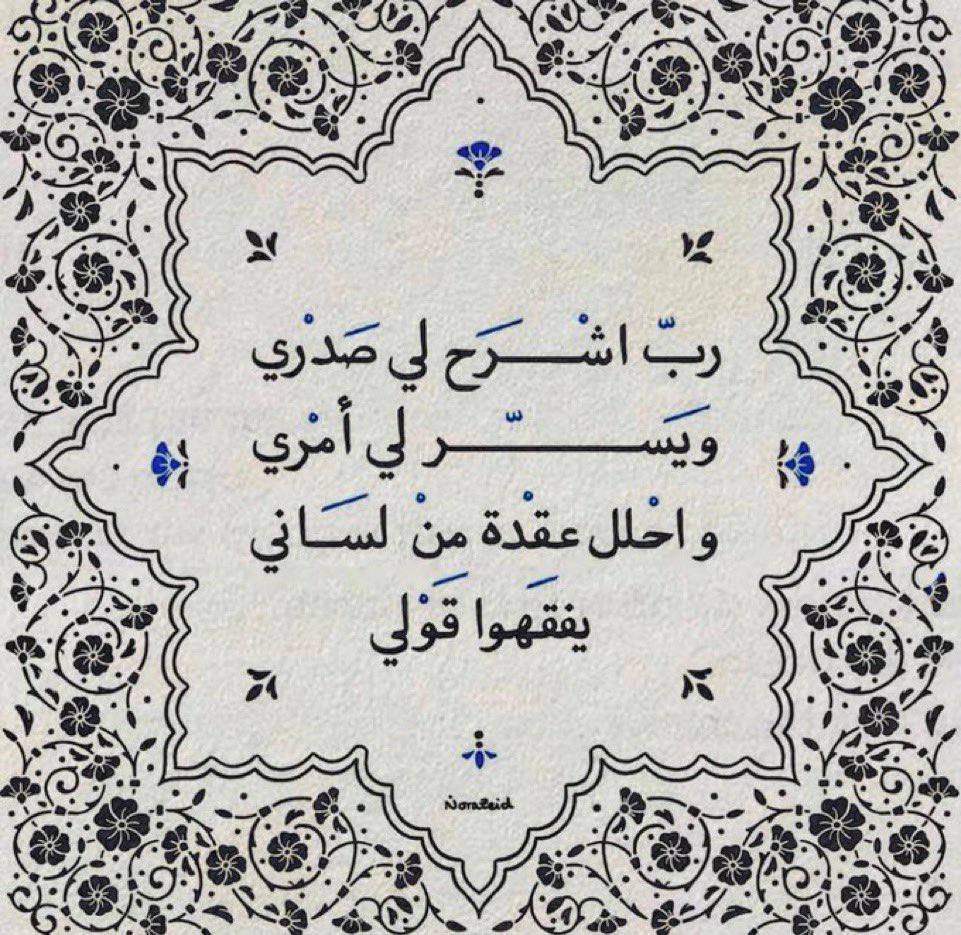 ربّ اشْرَح لي صَدْري
ويَسّر لي أمْري
واحْلل عقْدة منْ لسَاني
يفقَهوا قَوْلي
NoraZeid